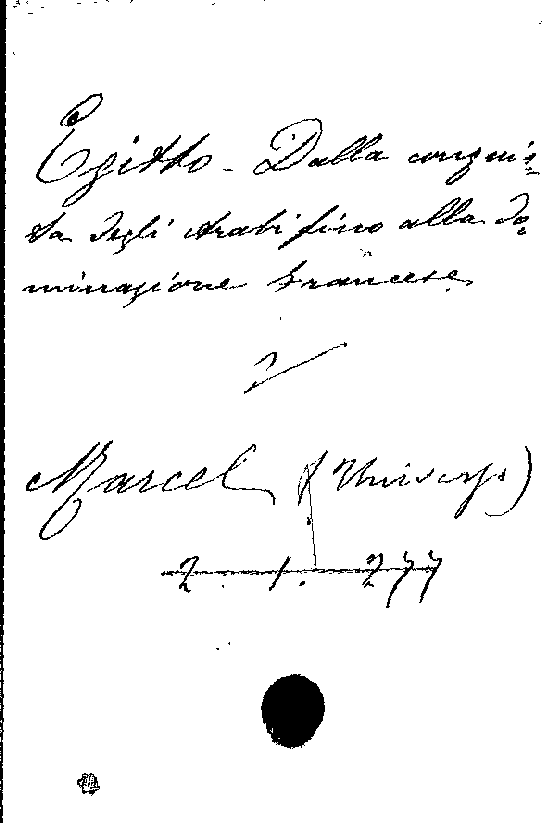 Egitto - Dalla conquis=
ta degli Arabi fino alla do=
minazione francese
Marcel (Univers.)
2. 1. 277